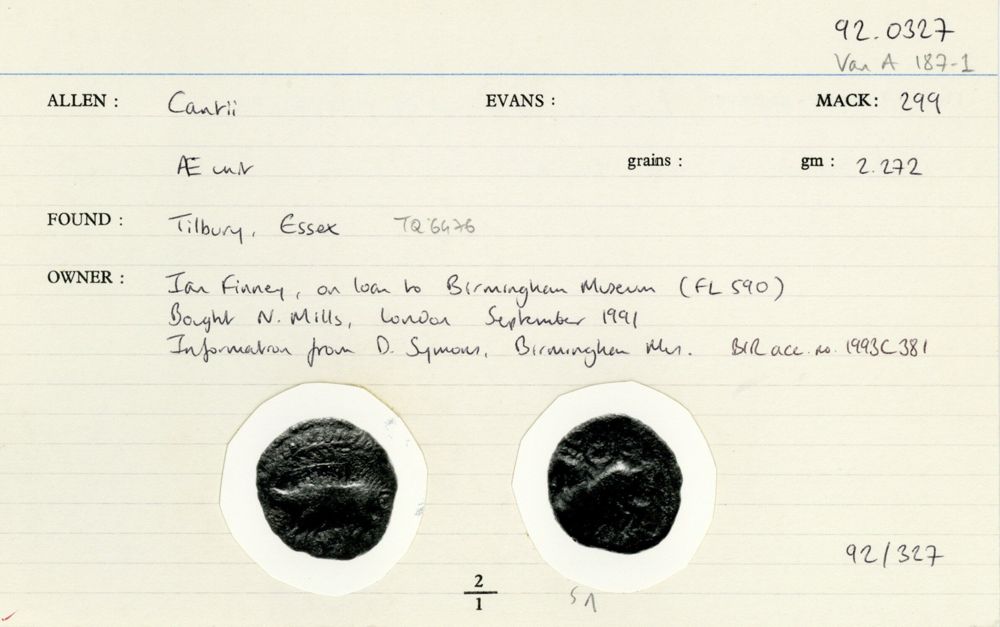 92.0327
Van A 187-1
ALLEN : Cantii EVANS : MACK: 299
Æ unit grains : gm : 2.272
FOUND : Tilbury, Essex TQ 6476
OWNER : Ian Finney, on loan to Birmingham Museum (FL 590)
Bought N. Mills, London September 1991
Information from D. Symons, Birmingham Mus. BIR acc. no. 1993C381
92/327
2
1